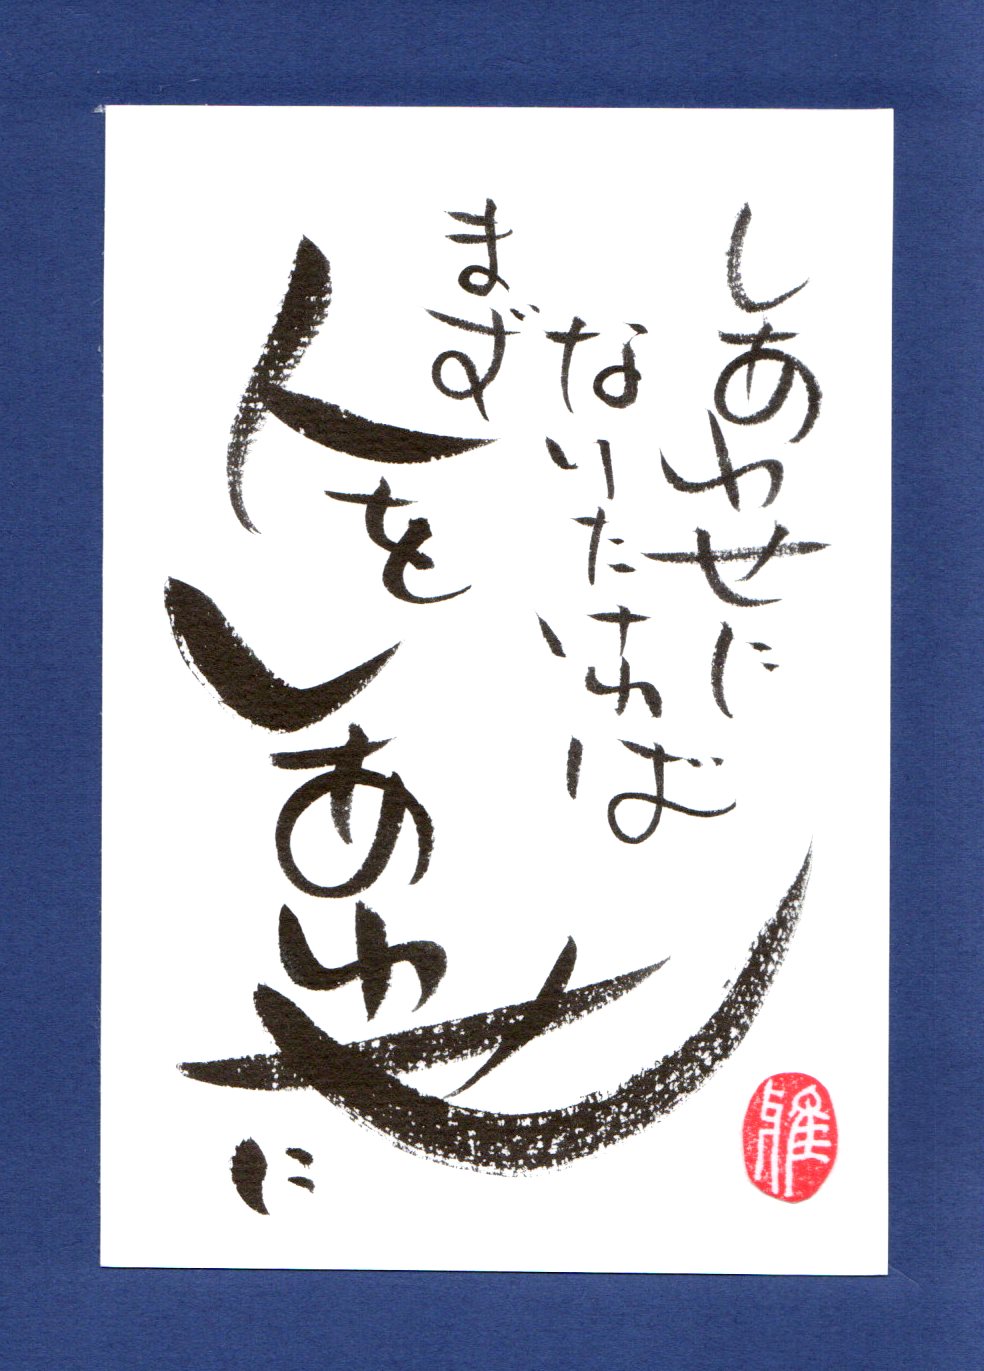 しあわせに
なりたければ
まず
人をしあわせに
雅